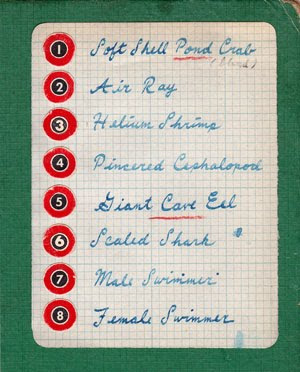 1 Soft Shell Pond Crab
2 Air Ray
3 Helium Shrimp
4 Pincered Cephalopod
5 Giant Cave Eel
6 Scaled Shark
7 Male Swimmer
8 Female Swimmer